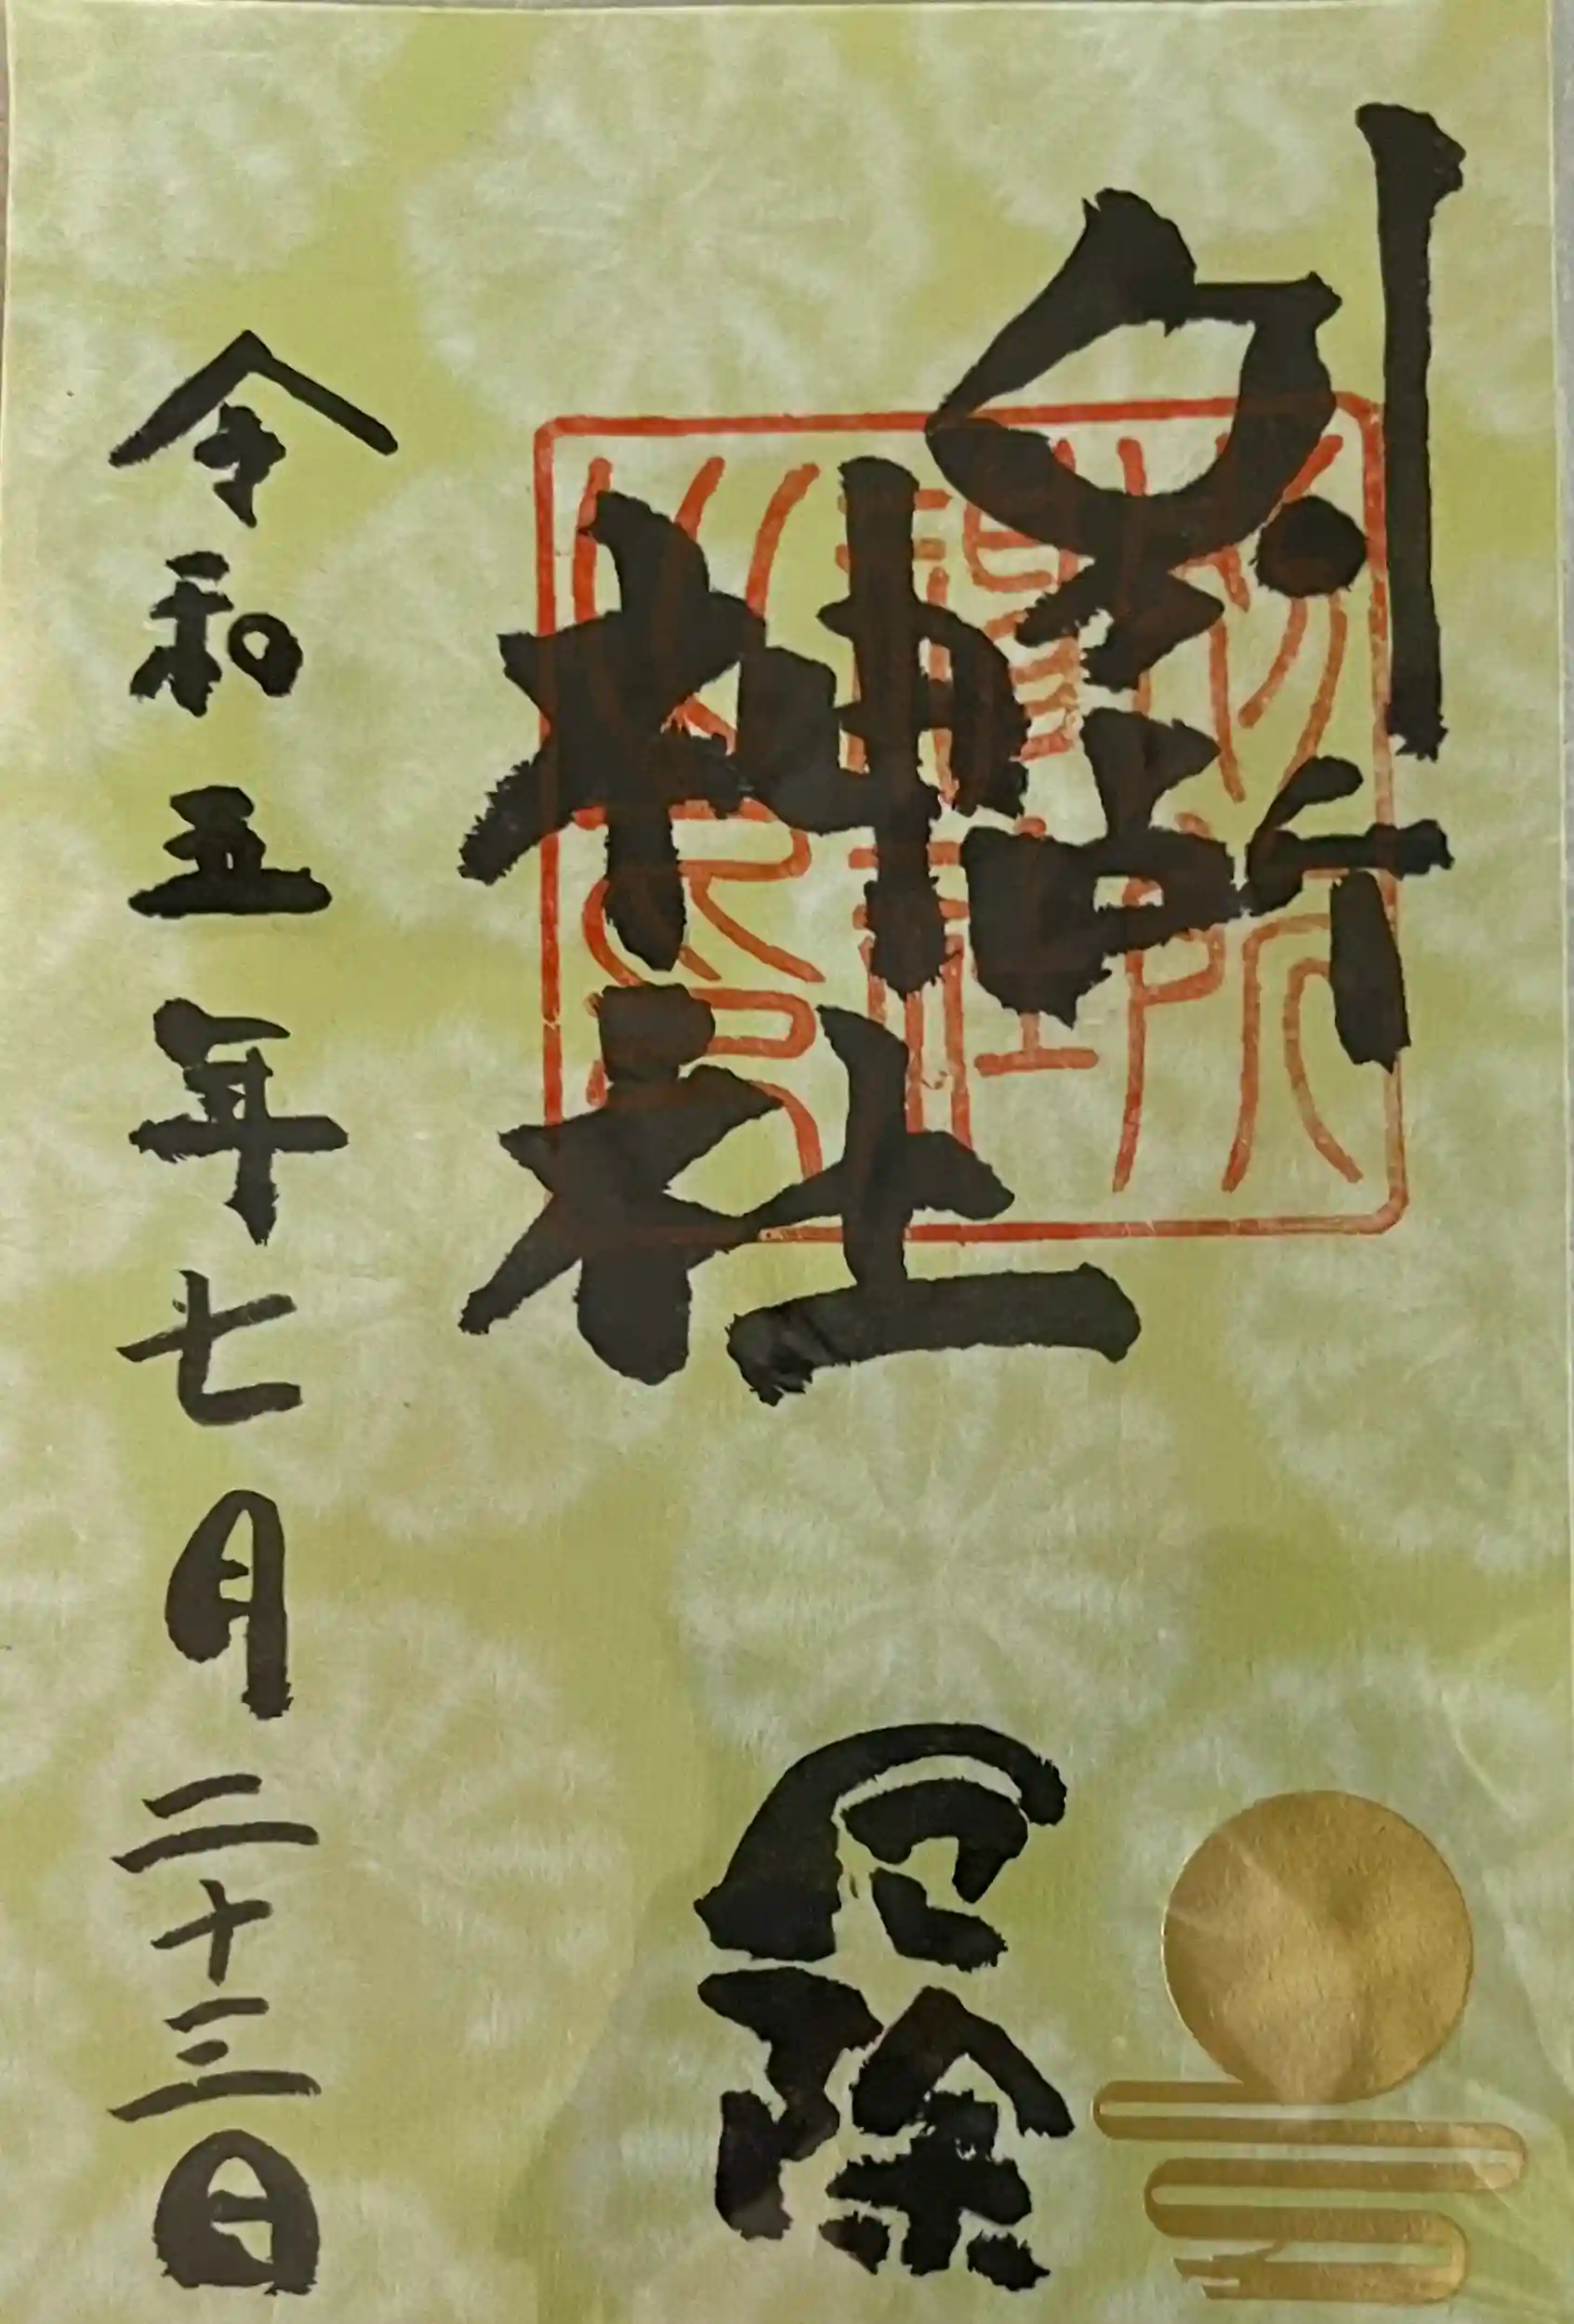 別所神社
厄除
令和五年七月二十三日